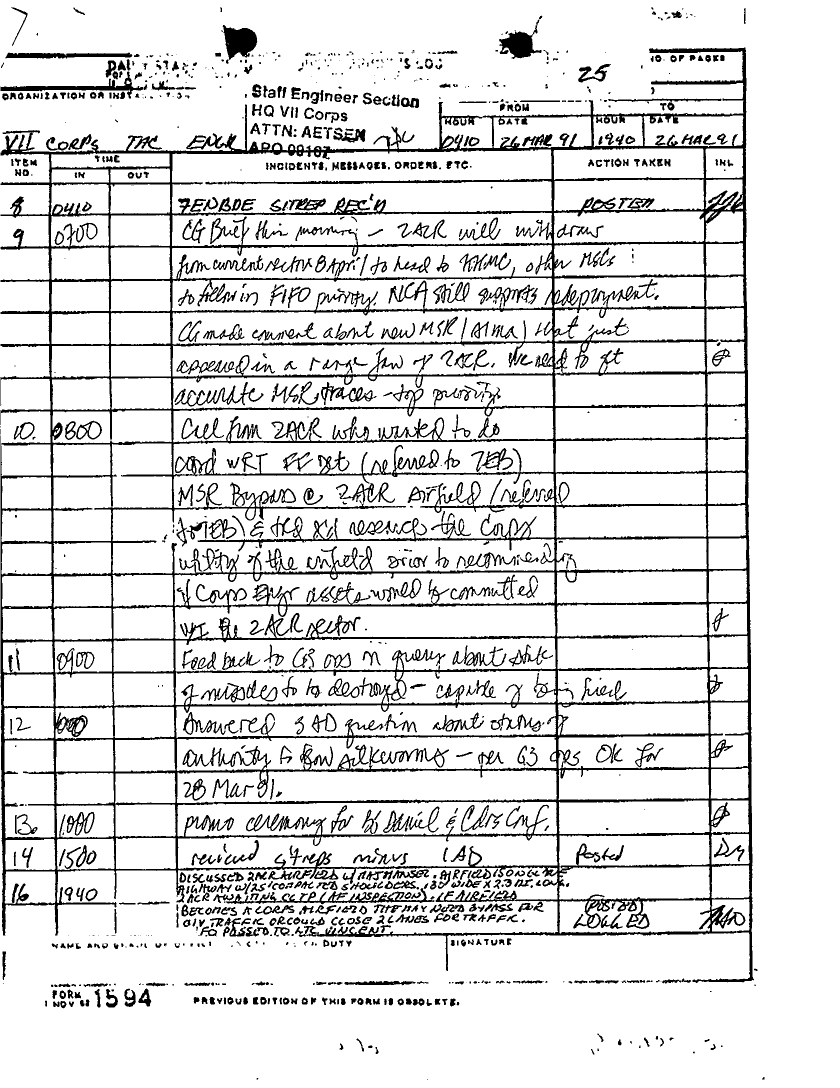 25
OF PAGES
ORGANIZATION OR
Staff Engineer Section
HQ VII Corps
ATTN: AETSEN
APO
FROM
TO
HOUR DATE HOUR DATE
VII CORPS TAC ENGR
0410 26 MAR 91 1940 26 MAR 91
ITEM NO. TIME IN OUT INCIDENTS, MESSAGES, ORDERS, ETC. ACTION TAKEN INL
8 0410 7ENBDE SITREP REC'D POSTED
9 0700 CG Brief this morning - 2ACR will withdraw
from current sector 8 April to head to KKMC, other MSCs
to follow in FIFO priority. NCA still supports redeployment.
CG made comment about new MSR (Alma) that just
appeared in a range fan of 2ACR. We need to get
accurate MSR traces - top priority.
10. 0800 Call from 2ACR who wanted to do
coord WRT (referred to 7EB)
MSR Bypass @ 2ACR Airfield (referred
to 7EB) & research the Corps
utility of the airfield prior to recommending
if Corps Engr assets would be committed
2ACR sector.
11 0900 Feed back to G3 ops on query about state
of missiles to be destroyed - capable of being fired
12 Answered 3AD question about status of
authority to blow silkworms - per G3 ops, OK for
28 Mar 91.
13. 1000 promo ceremony for Daniel & Cdrs Conf.
14 1500 received sitreps minus 1AD Posted
16 1940 DISCUSSED 2ACR AIRFIELD W/ . AIRFIELD IS ON
HIGHWAY W/25' COMPACTED SHOULDERS, WIDE X 2.3 MI. LONG.
2ACR AWAITING (AF INSPECTION). IF AIRFIELD
BECOMES A CORPS AIRFIELD THE MAY NEED BYPASS FOR
CIV TRAFFIC OR COULD CLOSE 2 LANES FOR TRAFFIC.
PASSED TO LTC VINCENT.
(POSTED)
LOGGED
DUTY SIGNATURE
FORM 1 NOV 62 1594 PREVIOUS EDITION OF THIS FORM IS OBSOLETE.